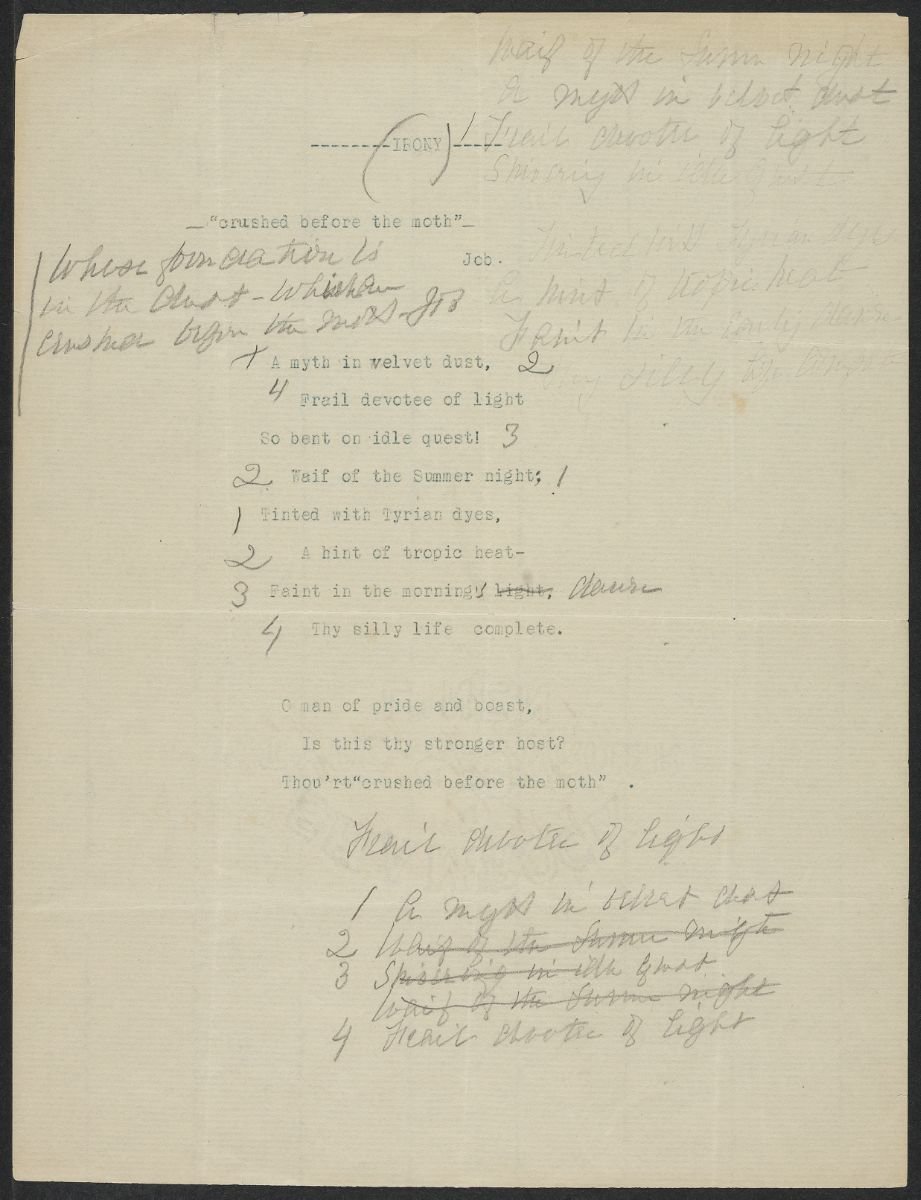 Waif of the Summer night
A myth in velvet dust
Frail devotee of light
in idle quest
--------IRONY-----
"crushed before the moth"
Job.
Whose foundation is
in the dust - Which are
crushed before the moth - Job
Tinted with Tyrian dyes
A hint of tropic heat
Faint in the early dawn
thy silly life
A myth in velvet dust, 2
4 Frail devotee of light
So bent on idle quest! 3
2 Waif of the Summer night; 1
1 Tinted with Tyrian dyes,
2 A hint of tropic heat-
3 Faint in the morning's light, dawn
4 Thy silly life complete.
O man of pride and boast,
Is this thy stronger host?
Thou'rt "crushed before the moth" .
Frail devotee of light
1 A myth in velvet dust
2 Waif of the Summer night
3 in idle quest
Waif of the Summer night
4 Frail devotee of light